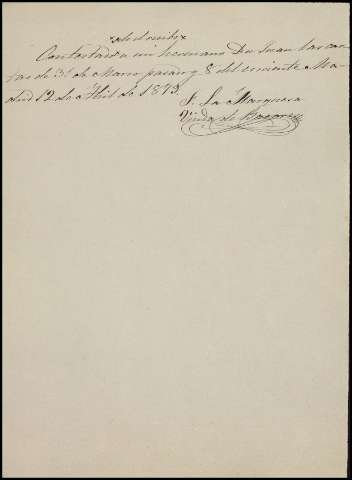 Contestado a mi hermano Dn Juan las car-
tas de 31 de Marzo pasado y 8 del corriente Ma-
drid 12 de Abril de 1873.
La Marquesa
Viuda de